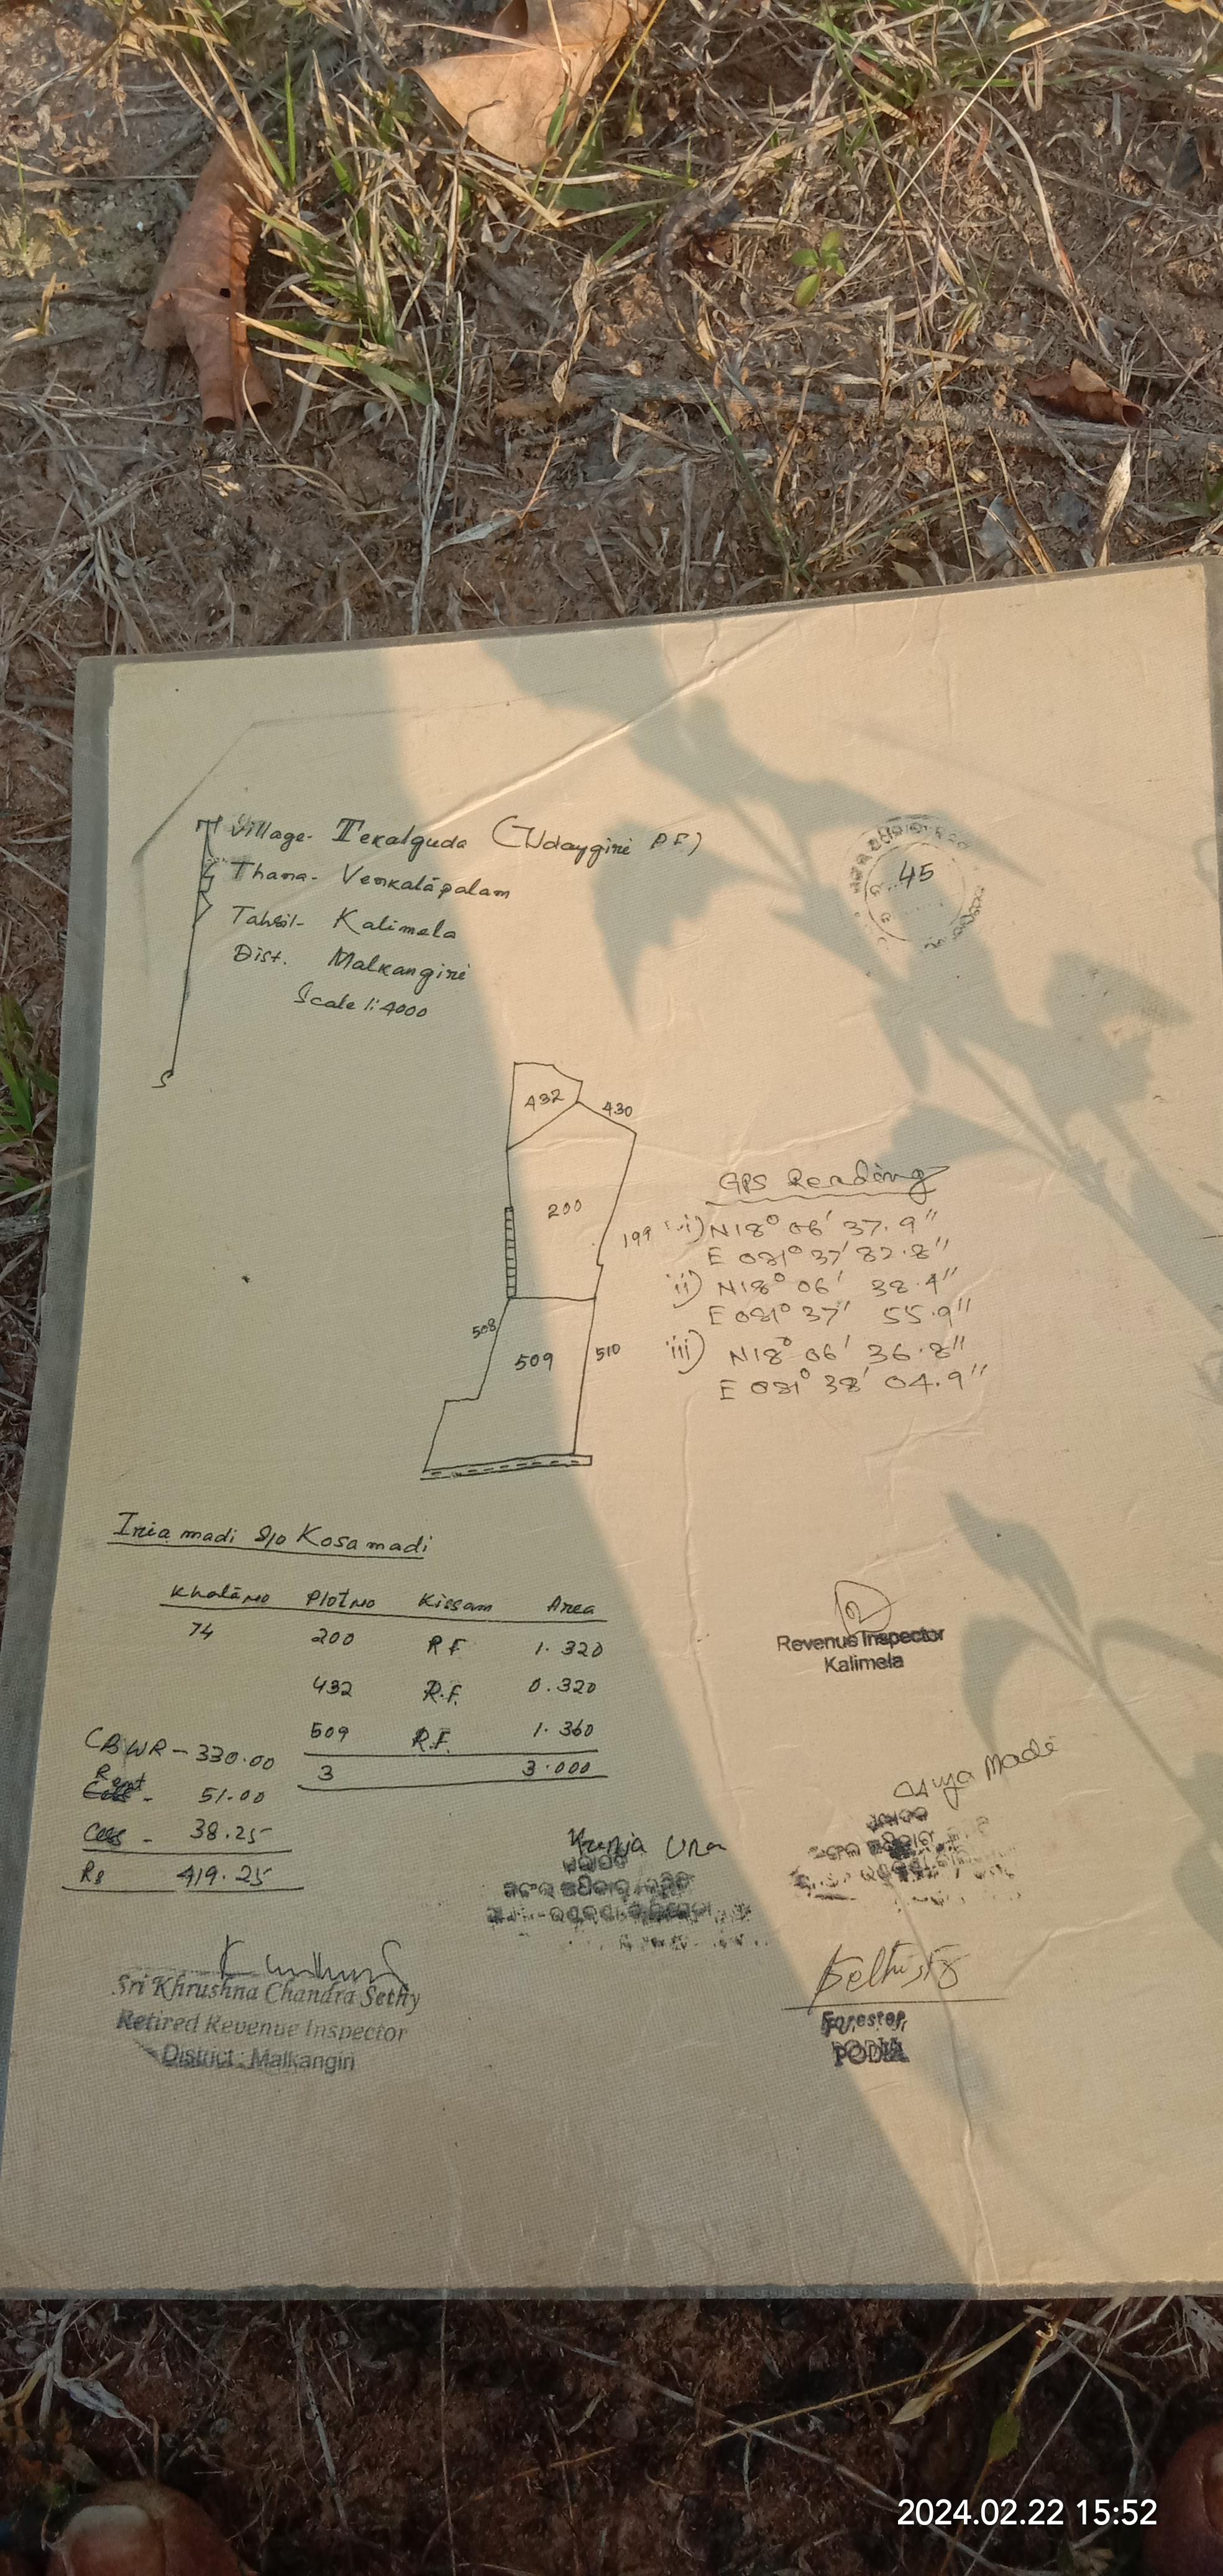 Village- Tekalguda (Udaygiri P.F)
Thana- Venkatapalam
Tahsil- Kalimela
Dist. Malkangiri
Scale 1:4000
S
45
432
430
200
199
508
509
510
GPS Reading
i) N18° 06' 37.9"
E 081° 37' 82.8"
ii) N18° 06' 38.4"
E 081° 37' 55.9"
iii) N18° 06' 36.8"
E 081° 38' 04.9"
Iria madi S/o Kosa madi
Khata No Plot No Kissam Area
74 200 R.F 1.320
432 R.F. 0.320
509 R.F. 1.360
3 3.000
CBWR - 330.00
Rent - 51.00
Cess - 38.25
Rs 419.25
Revenue Inspector
Kalimela
Madi
Ura
Sri Khrushna Chandra Sethy
Retired Revenue Inspector
District: Malkangiri
Forester,
PODIA
2024.02.22 15:52